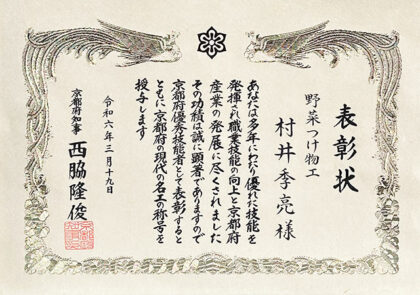 表彰状
野菜つけ物工
村井季亮様
あなたは多年にわたり優れた技能を
発揮され職業技能の向上と京都府
産業の発展に尽くされました
その功績は誠に顕著でありますので
京都府優秀技能者として表彰すると
ともに京都府の現代の名工の称号を
授与します
令和六年三月十九日
京都府知事
西脇隆俊